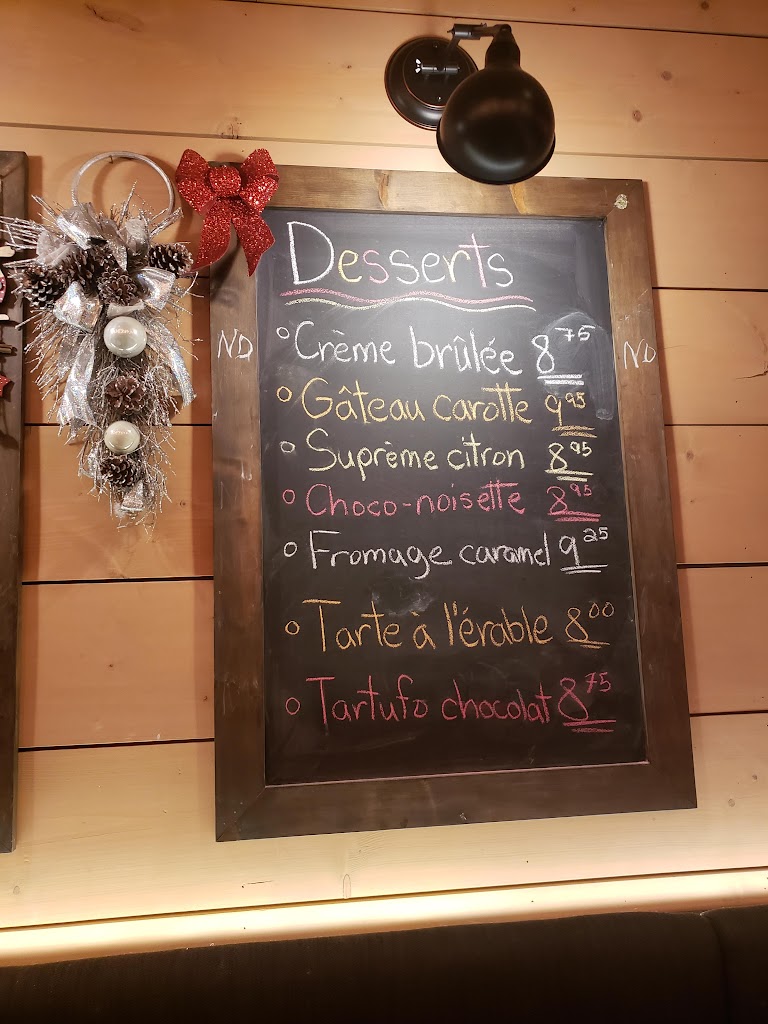 Desserts
ND
ND
° Crème brûlée 8 75
° Gâteau carotte 9 95
° Suprème citron 8 95
° Choco-noisette 8 95
° Fromage caramel 9 25
° Tarte à l'érable 8 00
° Tartufo chocolat 8 75